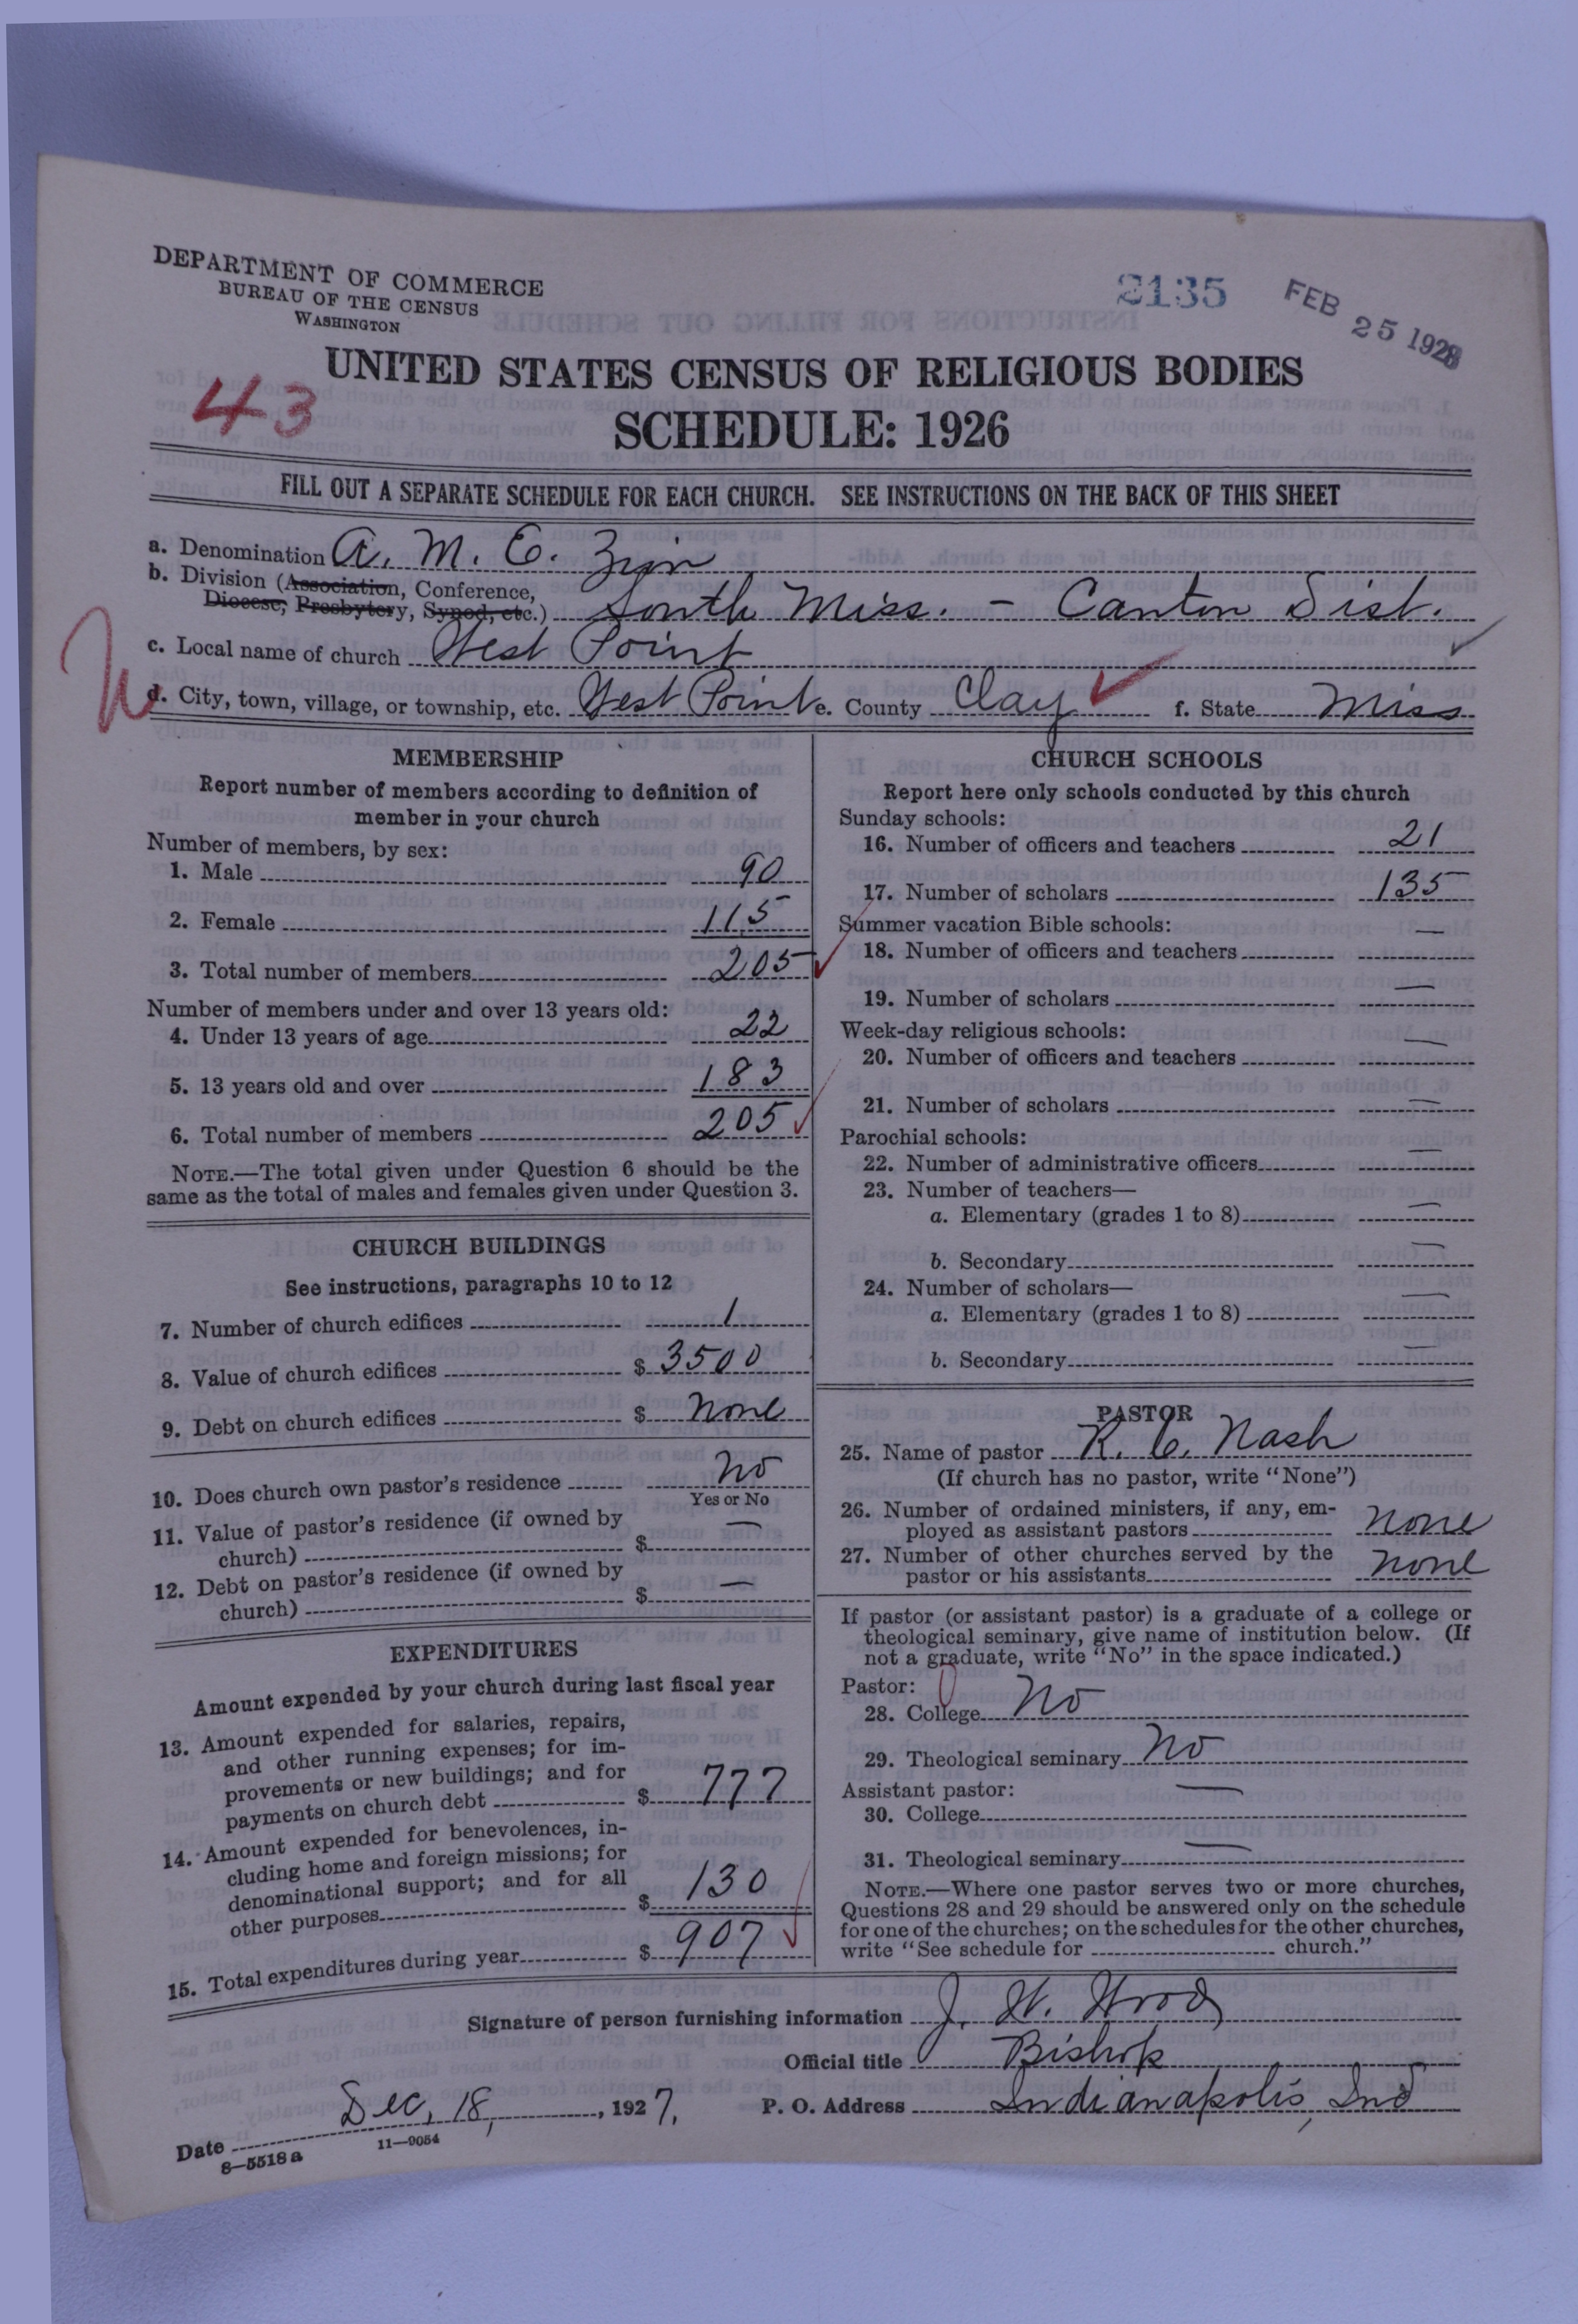 DEPARTMENT OF COMMERCE
BUREAU OF THE CENSUS
WASHINGTON
2135
FEB 25 1928
UNITED STATES CENSUS OF RELIGIOUS BODIES
43
SCHEDULE: 1926
FILL OUT A SEPARATE SCHEDULE FOR EACH CHURCH. SEE INSTRUCTIONS ON THE BACK OF THIS SHEET
a. Denomination A. M. E. Zion
b. Division (Association, Conference,
Diocese, Presbytery, Synod, etc.) South Miss. - Canton Dist.
c. Local name of church West Point
d. City, town, village, or township, etc. West Point e. County Clay f. State Miss
MEMBERSHIP
Report number of members according to definition of
member in your church
Number of members, by sex:
1. Male 90
2. Female 115
3. Total number of members 205
Number of members under and over 13 years old:
4. Under 13 years of age 22
5. 13 years old and over 183
6. Total number of members 205
NOTE.—The total given under Question 6 should be the
same as the total of males and females given under Question 3.
CHURCH BUILDINGS
See instructions, paragraphs 10 to 12
7. Number of church edifices 1
8. Value of church edifices $ 3500
9. Debt on church edifices $ None
10. Does church own pastor's residence No
Yes or No
11. Value of pastor's residence (if owned by
church) $ —
12. Debt on pastor's residence (if owned by
church) $ —
EXPENDITURES
Amount expended by your church during last fiscal year
13. Amount expended for salaries, repairs,
and other running expenses; for im-
provements or new buildings; and for
payments on church debt $ 777
14. Amount expended for benevolences, in-
cluding home and foreign missions; for
denominational support; and for all
other purposes $ 130
15. Total expenditures during year $ 907
CHURCH SCHOOLS
Report here only schools conducted by this church
Sunday schools:
16. Number of officers and teachers 21
17. Number of scholars 135
Summer vacation Bible schools:
18. Number of officers and teachers —
19. Number of scholars —
Week-day religious schools:
20. Number of officers and teachers —
21. Number of scholars —
Parochial schools:
22. Number of administrative officers —
23. Number of teachers—
a. Elementary (grades 1 to 8) —
b. Secondary —
24. Number of scholars—
a. Elementary (grades 1 to 8) —
b. Secondary —
PASTOR
25. Name of pastor R. C. Nash
(If church has no pastor, write "None")
26. Number of ordained ministers, if any, em-
ployed as assistant pastors None
27. Number of other churches served by the
pastor or his assistants None
If pastor (or assistant pastor) is a graduate of a college or
theological seminary, give name of institution below. (If
not a graduate, write "No" in the space indicated.)
Pastor:
28. College No
29. Theological seminary No
Assistant pastor:
30. College —
31. Theological seminary —
NOTE.—Where one pastor serves two or more churches,
Questions 28 and 29 should be answered only on the schedule
for one of the churches; on the schedules for the other churches,
write "See schedule for church."
Signature of person furnishing information J. W. Wood
Official title Bishop
Date Dec, 18, 1927, P. O. Address Indianapolis, Ind
8—5518a 11—9054